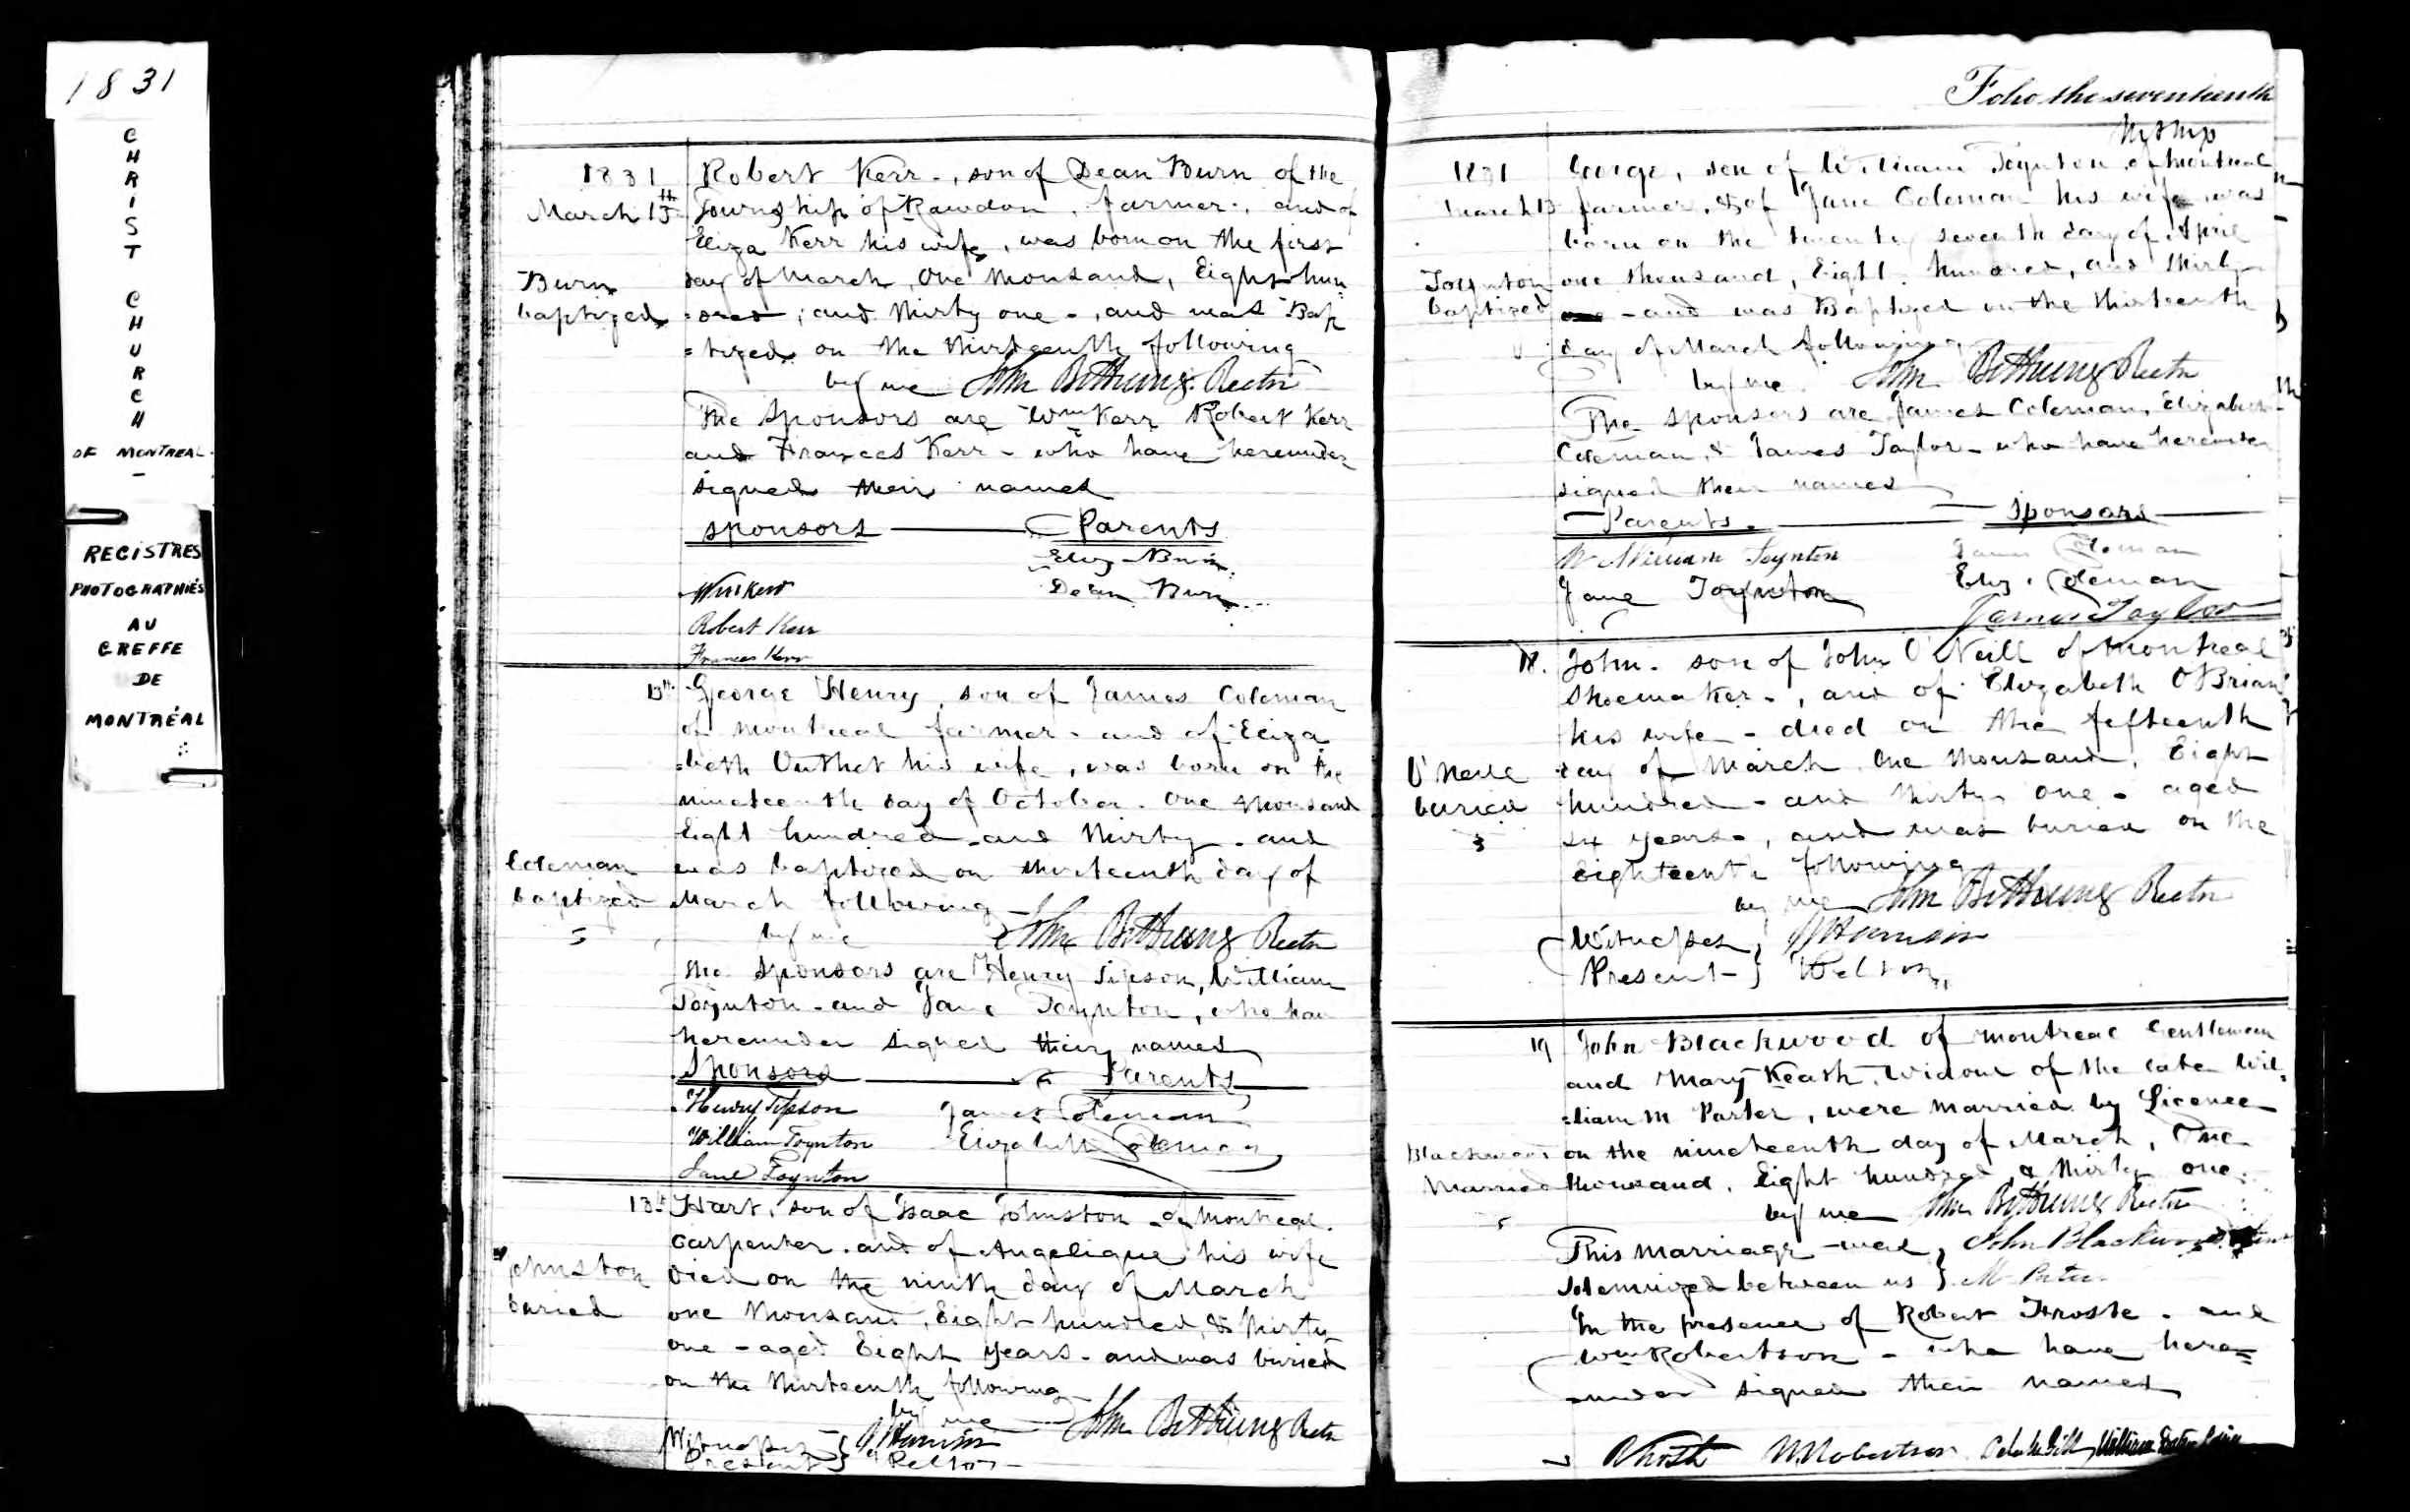 1831
CHRIST
CHURCH
OF MONTREAL.
REGISTRES
PHOTOGRAPHIÉS
AU
GREFFE
DE
MONTRÉAL
1831
March 13th
Burn
baptized
Robert Kerr -, son of Dean Burn of the
Township of Rawdon, farmer, and of
Eliza Kerr his wife, was born on the first
day of March, One thousand, Eight hun=
=dred, and thirty one -, and was Bap
=tized on the thirteenth following
by me John Bethune Rector
The Sponsors are Wm Kerr Robert Kerr
and Frances Kerr - who have hereunder
signed their names
Sponsors Parents
Eliz Burn
Wm Kerr Dean Burn
Robert Kerr
Frances Kerr
13th
Coleman
baptized
5
George Henry, son of James Coleman
of Montreal farmer - and of Eliza
=beth Outhet his wife, was born on the
nineteenth day of October - One thousand
Eight hundred and thirty - and
was baptized on thirteenth day of
March following -
by me John Bethune Rector
The Sponsors are Henry Sipson, William
Toynton - and Jane Toynton, who have
hereunder signed their names
Sponsors Parents
Henry Sipson James Coleman
William Toynton Elizabeth Coleman
Jane Toynton
13th
Johnston
buried
Hart, son of Isaac Johnston of Montreal.
Carpenter. and of Angelique his wife
Died on the ninth day of March
one thousand, Eight hundred, & thirty
one - aged Eight years - and was buried
on the thirteenth following
by me John Bethune Rector
Witnesses } J Harrison
Present }
Folio the seventeenth
1831
March 13
Toynton
baptized
George, son of William Toynton of Montreal
farmer, & of Jane Coleman his wife was
born on the twenty seventh day of April
one thousand, Eight hundred, and thirty
one - and was Baptized on the thirteenth
day of March following
by me John Bethune Rector
The Sponsors are James Coleman, Elizabeth
Coleman, & James Taylor - who have hereunder
signed their names
Parents. Sponsors
William Toynton James Coleman
Jane Toynton Eliz. Coleman
James Taylor
18.
O'Neill
buried
3
John - son of John O'Neill of Montreal
Shoemaker -, and of Elizabeth O'Brian
his wife - died on the fifteenth
day of March One thousand, Eight
hundred - and thirty one - aged
six years -, and was buried on the
Eighteenth following
by me John Bethune Rector
Witnesses } J Harrison
Present - }
19
Blackwood
Married
John Blackwood of Montreal Gentleman
and Mary Keath, Widow of the late Wil=
=liam M Porter, were married by Licence
on the nineteenth day of March, One
thousand, Eight hundred & thirty one.
by me John Bethune Rector
This marriage was } John Blackwood
solemnized between us } M Porter
In the presence of Robert Froste - and
Wm Robertson - who have here=
=under signed their names
R Froste W. Robertson